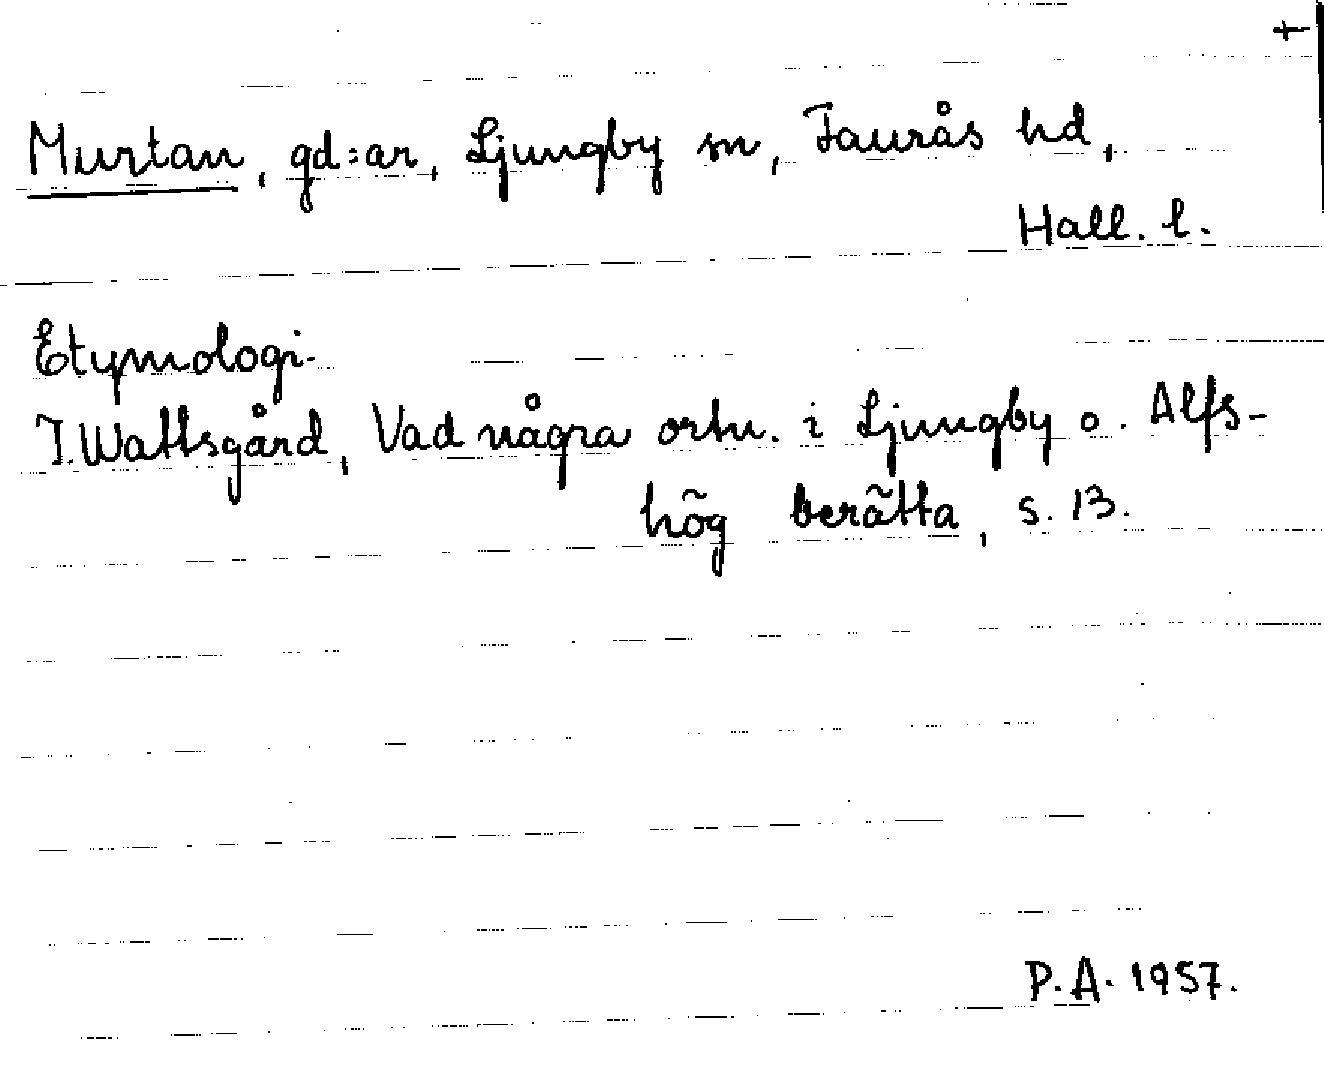 +
Murtan, gd:ar, Ljungby sn, Faurås hd,
Hall. l.
Etymologi.
I. Wattsgård, Vad några ortn. i Ljungby o. Alfs-
hög berätta, s. 13.
P.A. 1957.